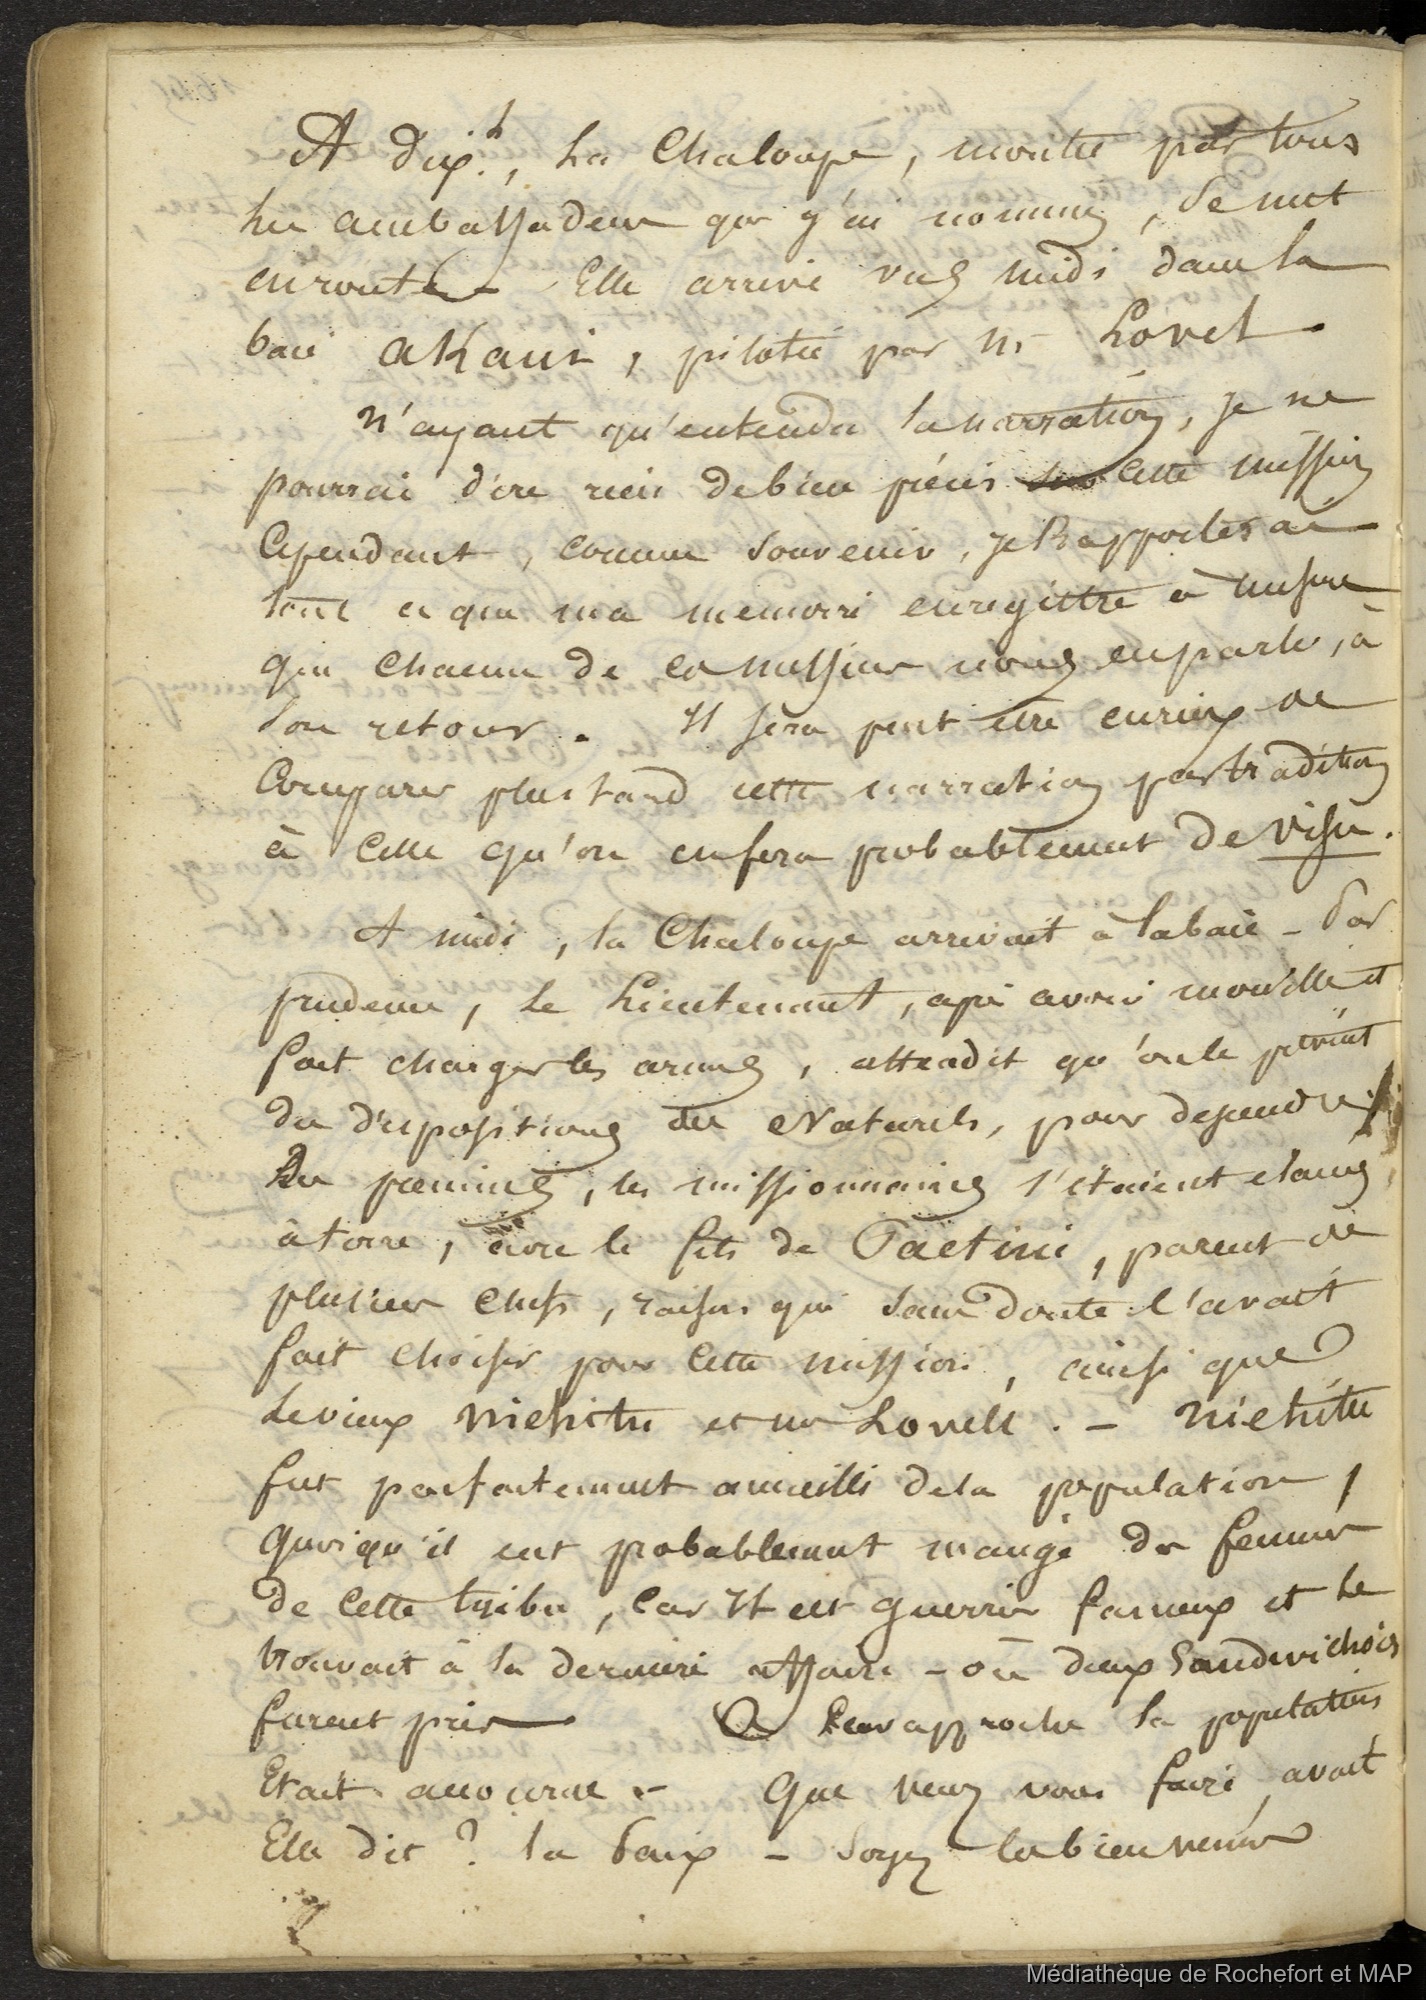 A dix h., La Chaloupe, montée par tous
les ambassadeurs que j'ai nommés, se met
en route – Elle arrive vers midi dans la
baie akani, pilotée par Mr Lovel
N'ayant qu'entendu la narration, je ne
pourrai dire rien de bien précis sur cette mission
Cependant, comme souvenir, je Rapporterai
tout ce que ma memoire enregistre à mesure
que chacun de ces messieurs nous en parle, à
son retour. Il sera peut etre curieux de
Comparer plus tard cette narration par tradition
à celle qu'on en fera probablement de visu.
A midi, la Chaloupe arrivait à la baie – Par
prudence, le Lieutenant, après avoir mouillé et
fait charger les armes, attendit qu'on le prévint
des dispositions des Naturels, pour descendre
Les premiers, les missionnaires s'étaient elancés
à terre, avec le fils de Paetini, parent de
plusieurs chefs, raison qui sans doute l'avait
fait choisir pour cette mission, ainsi que
Le vieux niehitu et mr Lovell. – niehitu
fut parfaitement accueilli de la population,
quoiqu'il eut probablement mangé des femmes
de cette tribu, car Il est guerrier fameux et se
trouvait à la derniere affaire – où deux Sandwichois
furent pris – à leur approche la population
Etait accourue – Que venez vous faire, avait
Elle dit? la Paix – Soyez les bienvenus
Médiathèque de Rochefort et MAP